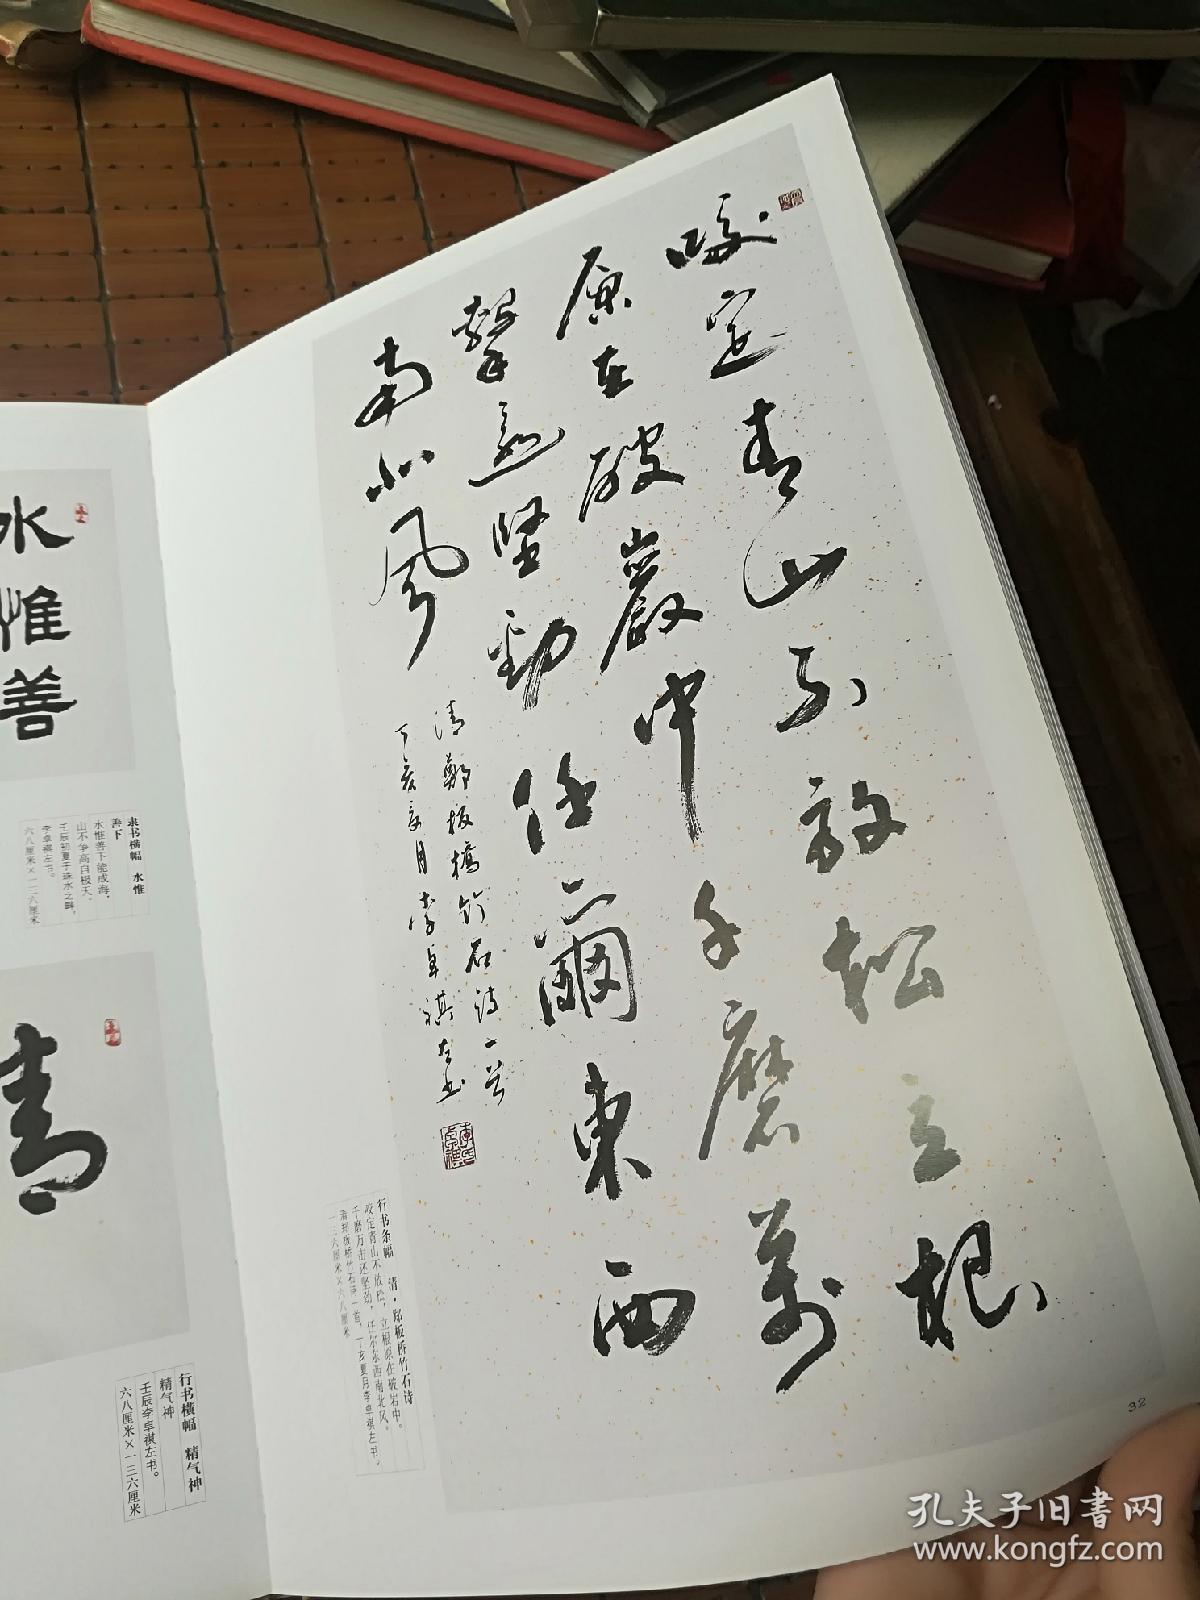 咬定青山不放松立根
原在破巖中千磨萬
擊還堅勁任爾東西
南北风
清鄭板橋竹石詩一首
丁亥夏月李卓祺左书
行书条幅 清·郑板桥竹石诗
咬定青山不放松，立根原在破岩中。
千磨万击还坚劲，任尔东西南北风。
清郑板桥竹石诗一首，丁亥夏月李卓祺左书。
一三六厘米×六八厘米
32
水
惟
善
隶书横幅 水惟
善下
水惟善下能成海，
山不争高自极天。
壬辰初夏于珠水之畔，
李卓祺左书。
六八厘米×一三六厘米
精
行书横幅 精气神
精气神
壬辰李卓祺左书。
六八厘米×一三六厘米
孔夫子旧书网
www.kongfz.com